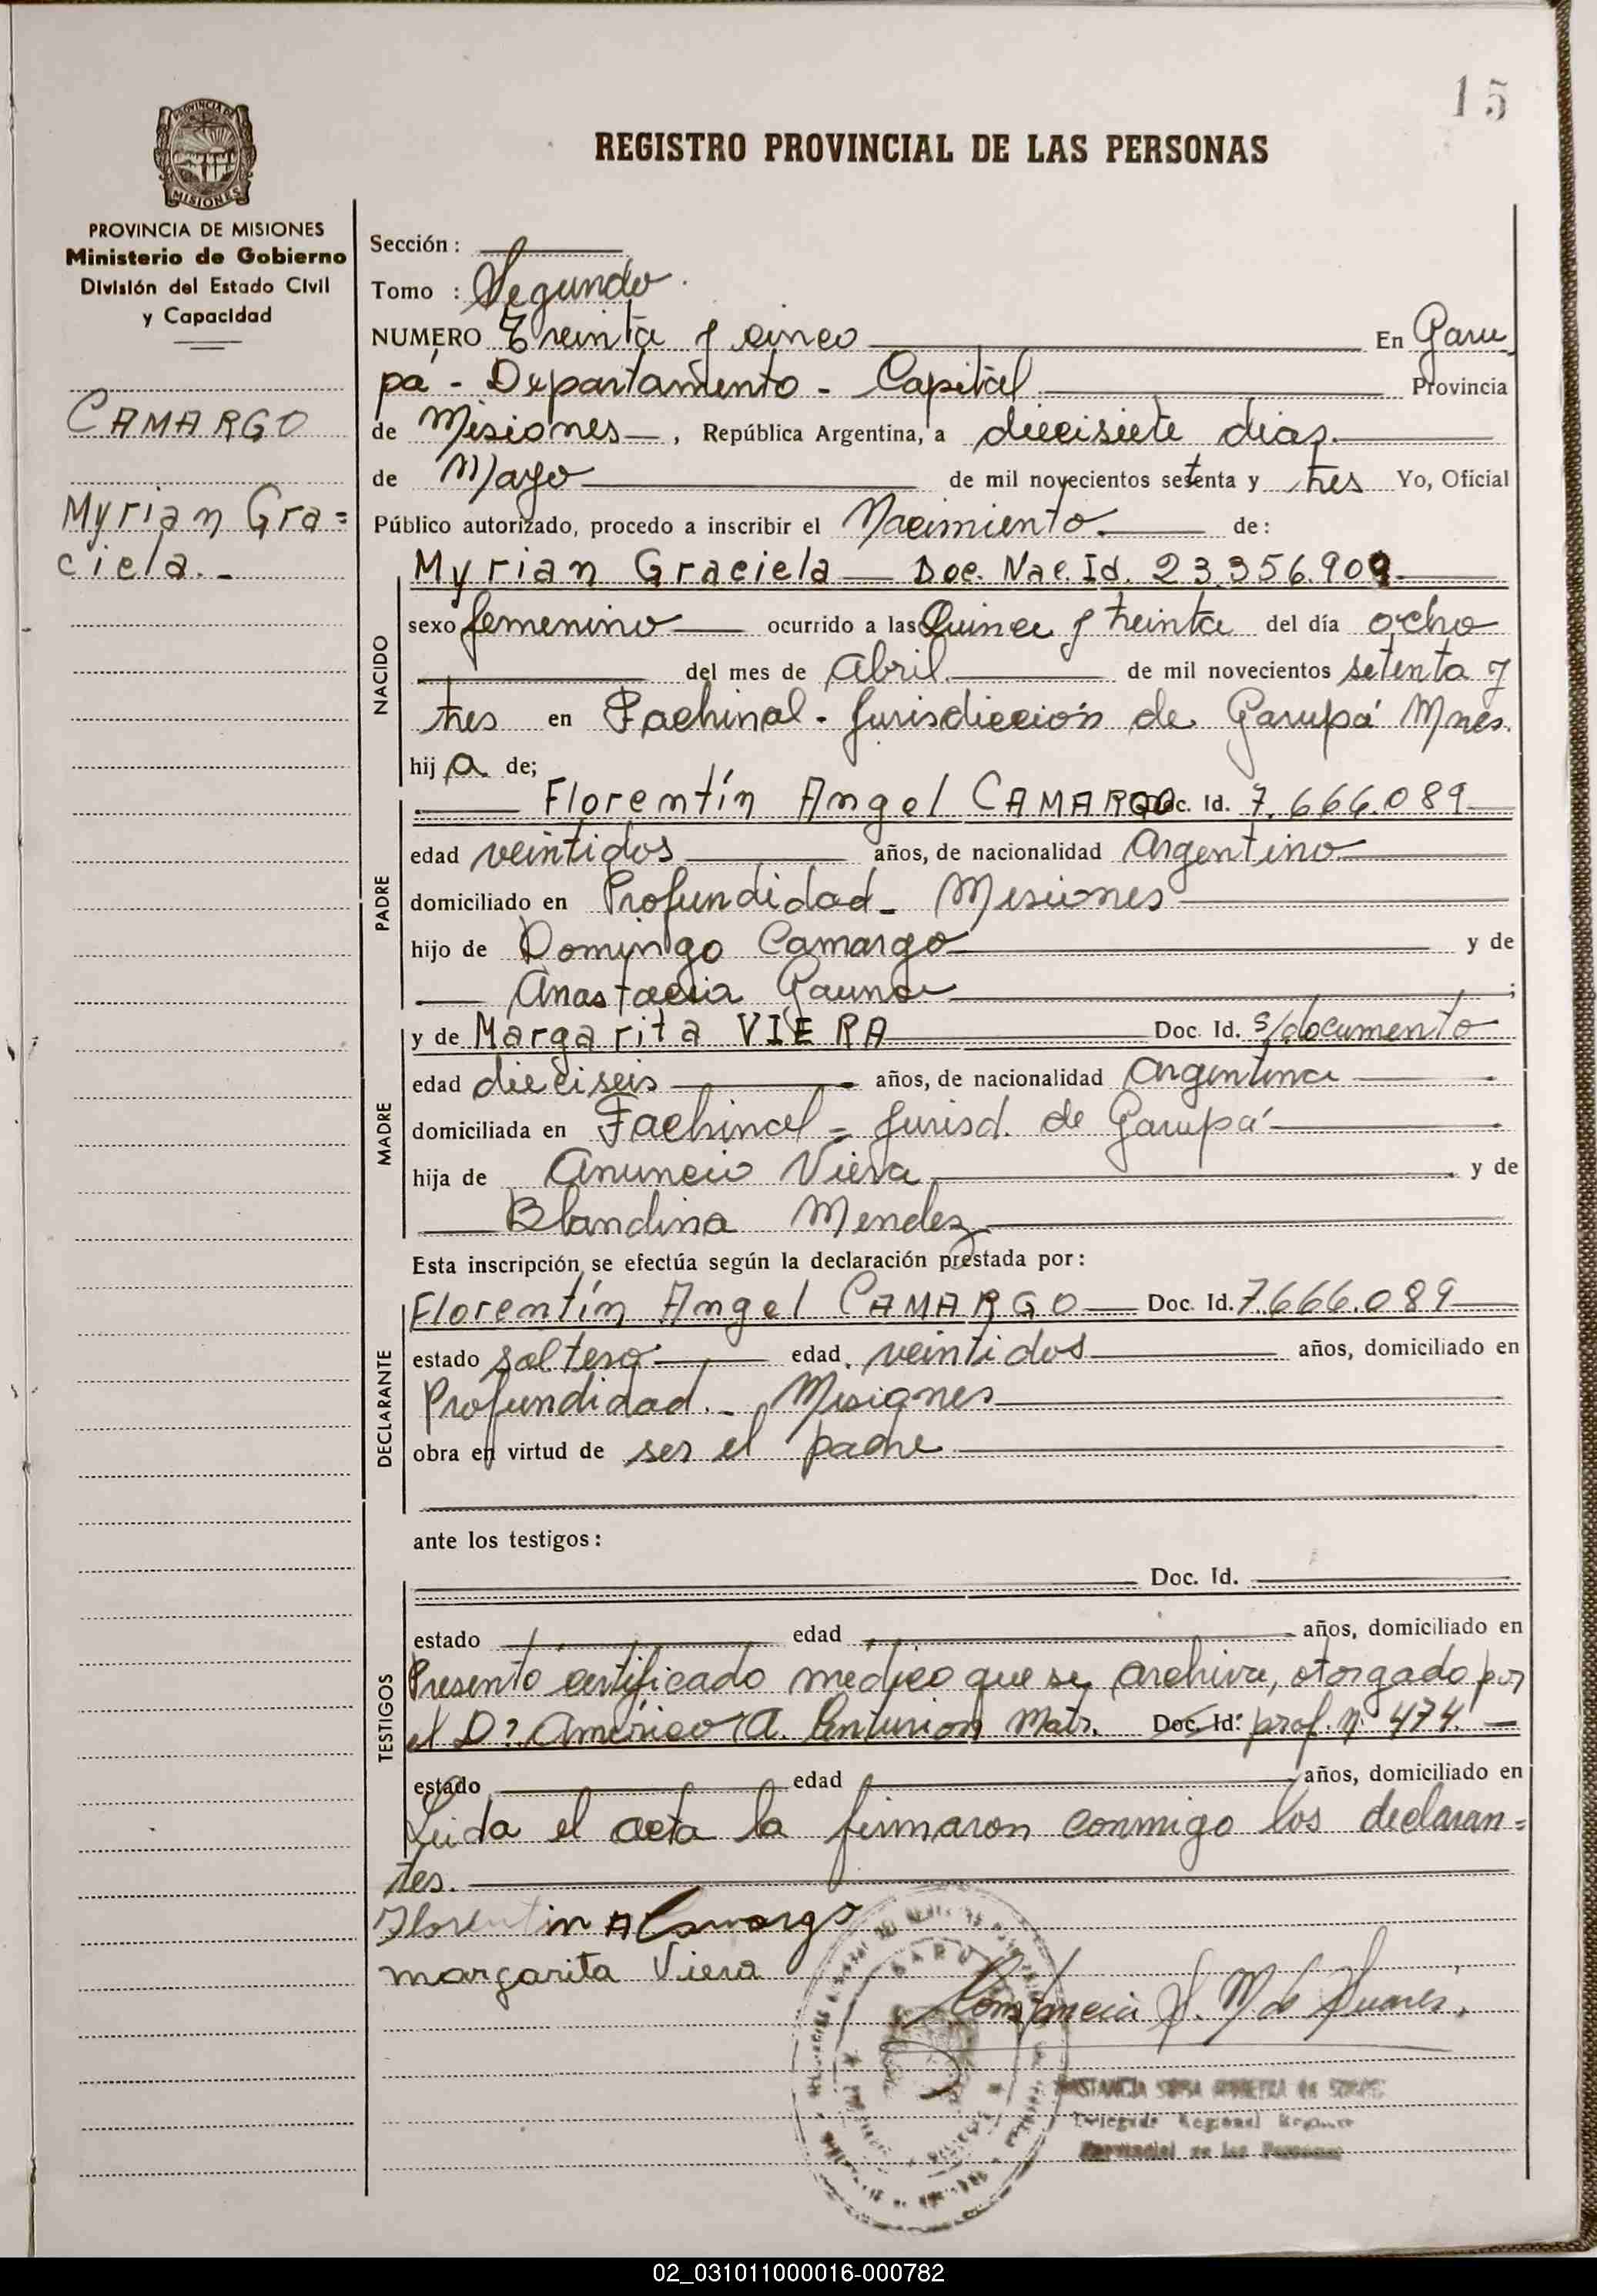 15
REGISTRO PROVINCIAL DE LAS PERSONAS
PROVINCIA DE
MISIONES
PROVINCIA DE MISIONES
Ministerio de Gobierno
División del Estado Civil
y Capacidad
CAMARGO
Myrian Gra=
ciela.-
Sección :
Tomo : Segundo
NUMERO Treinta y cinco En Garu
pá - Departamento - Capital Provincia
de Misiones , República Argentina, a diecisiete dias
de Mayo de mil novecientos setenta y tres Yo, Oficial
Público autorizado, procedo a inscribir el Nacimiento de:
NACIDO
Myrian Graciela Doc. Nac. Id. 23.356.909
sexo femenino ocurrido a las Quince y treinta del día ocho
del mes de Abril de mil novecientos setenta y
tres en Fachinal - Jurisdicción de Garupá Mnes.
hij a de;
PADRE
Florentín Angel CAMARGO Doc. Id. 7.666.089
edad veintidos años, de nacionalidad Argentino
domiciliado en Profundidad - Misiones
hijo de Domingo Camargo y de
Anastacia Gauna ;
MADRE
y de Margarita VIERA Doc. Id. s/documento
edad dieciseis años, de nacionalidad Argentina
domiciliada en Fachinal - Jurisd. de Garupá
hija de Anuncio Viera y de
Blandina Mendez
Esta inscripción se efectúa según la declaración prestada por:
DECLARANTE
Florentín Angel CAMARGO Doc. Id. 7.666.089
estado soltero edad veintidos años, domiciliado en
Profundidad.- Misiones
obra en virtud de ser el padre
ante los testigos:
TESTIGOS
Doc. Id.
estado edad años, domiciliado en
Presento certificado medico que se archiva, otorgado por
el Dr Américo A. Centurion Matr. Doc. Id. prof. nº 474.
estado edad años, domiciliado en
Leida el acta la firmaron conmigo los declaran=
tes.
Florentin A Camargo
margarita Viera
Constancia S. M de Suares.
Delegada Regional
Provincial de las Personas
02_031011000016-000782